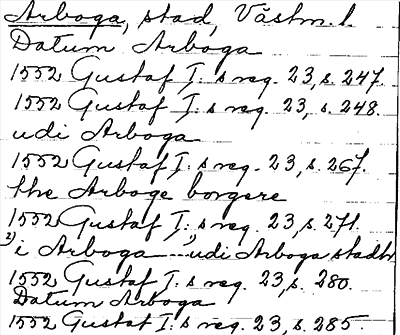 Arboga, stad, Västm. l.
Datum Arboga
1552 Gustaf I: s reg. 23, s. 247.
1552 Gustaf I: s reg. 23, s. 248.
udi Arboga
1552 Gustaf I: s reg. 23, s. 267.
the Arboge borgere
1552 Gustaf I: s reg. 23, s. 271.
2) i Arboga --- 1) udi Arboga stadh
1552 Gustaf I: s reg. 23, s. 280.
Datum Arboga
1552 Gustaf I: s reg. 23, s. 285.